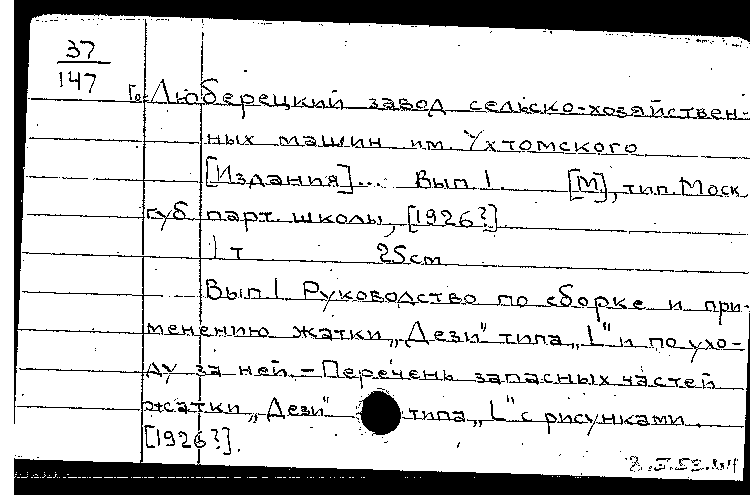 37
147
Го-Люберецкий завод сельско-хозяйствен-
ных машин им. Ухтомского
[Издания]... Вып. 1. [М], тип. Моск.
губ. парт. школы, [1926?].
1 т 25см
Вып. 1. Руководство по сборке и при-
менению жатки „Дези" типа „L" и по ухо-
ду за ней. – Перечень запасных частей
жатки „Дези" типа „L" с рисунками.
[1926?].